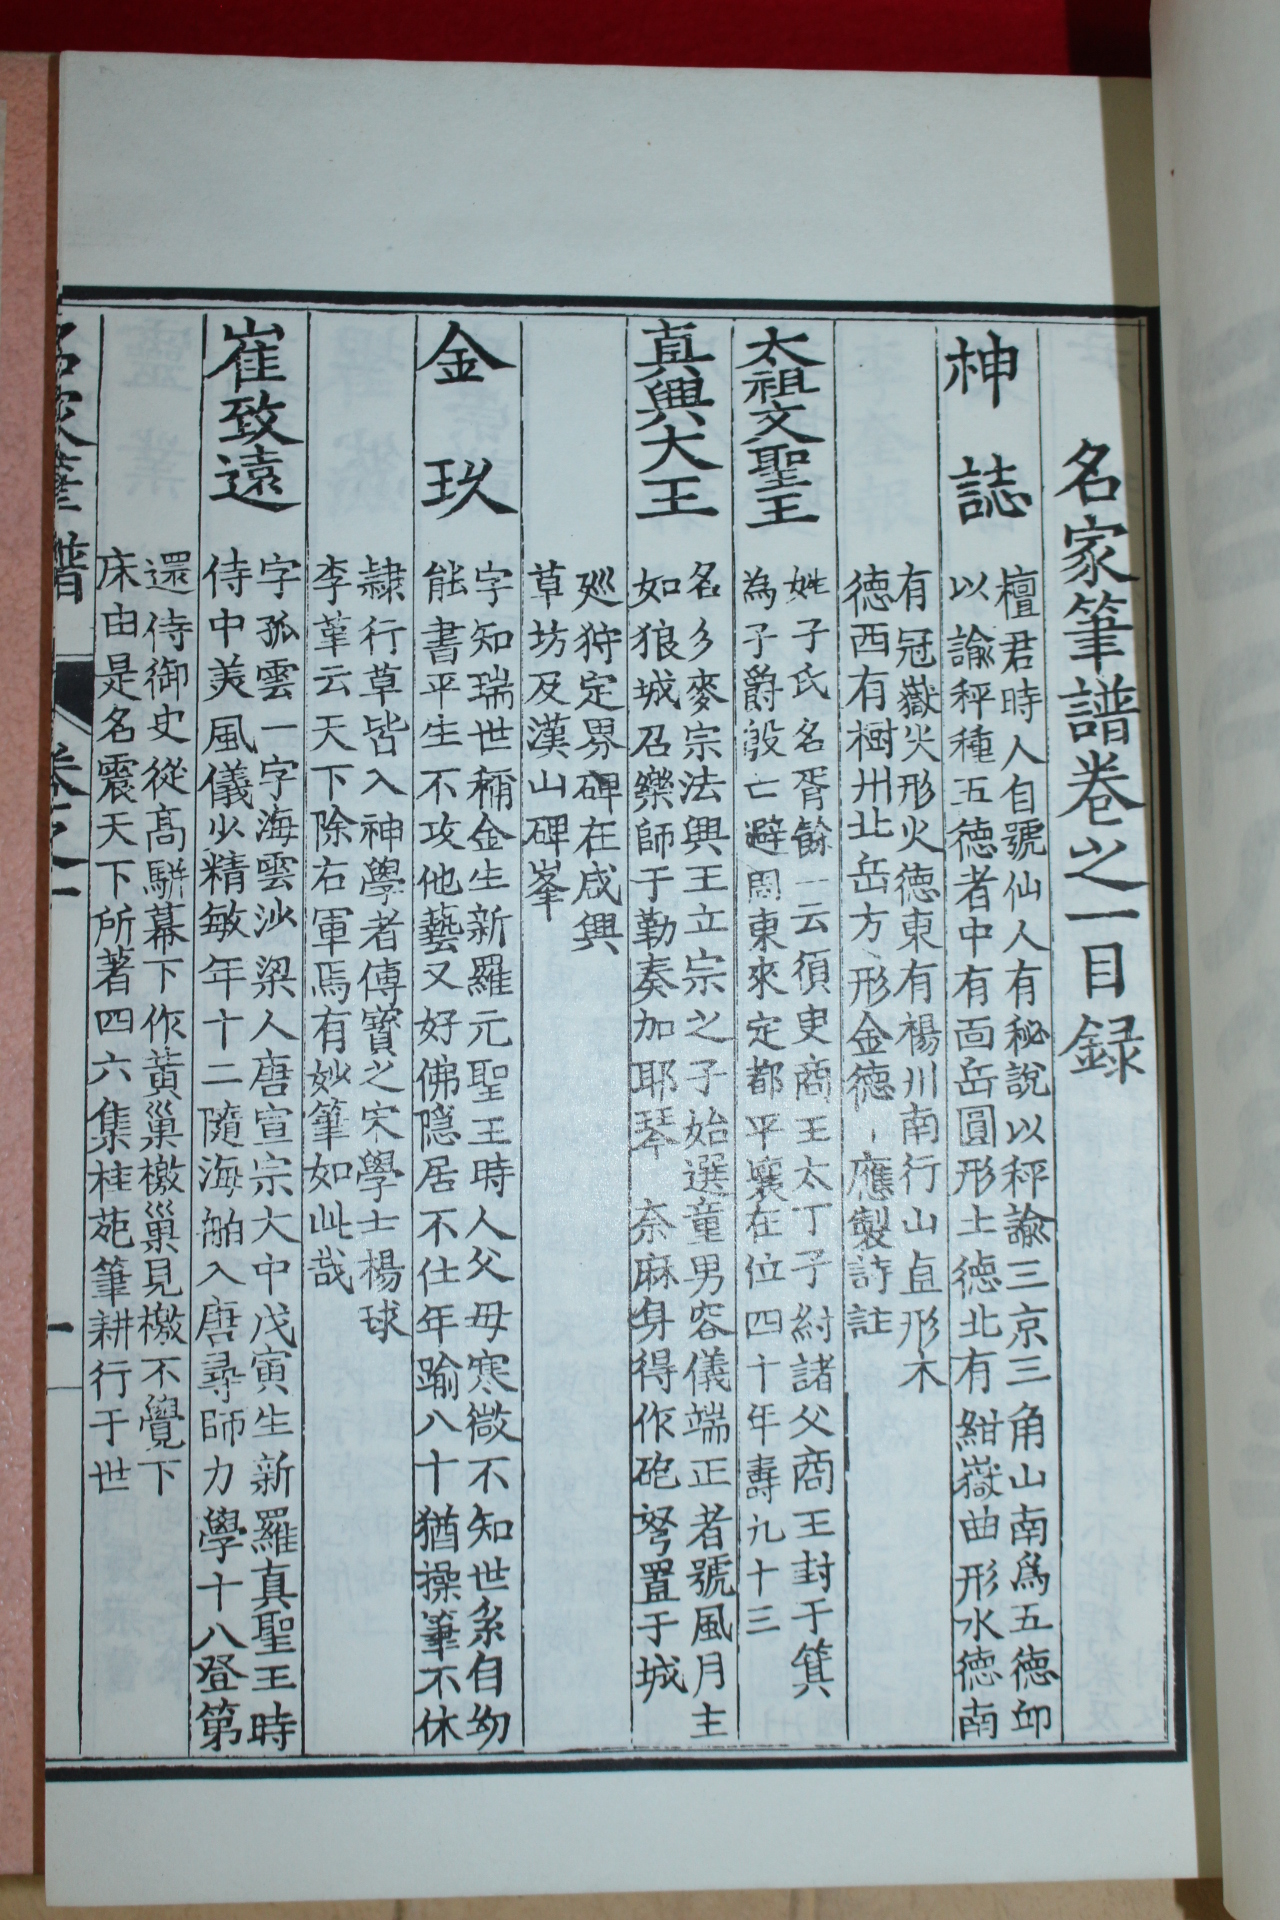 名家筆譜卷之一目録
神誌
檀君時人自號仙人有秘說以秤諭三京三角山南爲五德丘
以諭秤種五德者中有面岳圓形土德北有紺嶽曲形水德南
有冠嶽火形火德東有楊州南行山直形木
德西有樹州北岳方形金德應製詩註
太祖文聖王
姓子氏名胥餘一云須臾商王太丁子紂諸父商王封于箕
為子爵殷亡避周東來定都平襄在位四十年壽九十三
真興大王
名彡麥宗法興王立宗之子始選童男容儀端正者號風月主
如狼城召樂師于勒奏加耶琴 奈麻身得作砲弩置于城
廵狩定界碑在咸興
草坊及漢山碑峯
金玖
字知瑞世稱金生新羅元聖王時人父母寒微不知世系自幼
能書平生不攻他藝又好佛隠居不仕年踰八十猶操筆不休
隷行草皆入神學者傳寶之宋學士楊球
李革云天下除右軍焉有妙筆如此哉
崔致遠
字孤雲一字海雲沙梁人唐宣宗大中戊寅生新羅真聖王時
侍中美風儀少精敏年十二隨海舶入唐尋師力學十八登第
還侍御史從高駢幕下作黃巢檄巢見檄不覺下
床由是名震天下所著四六集桂苑筆耕行于世
名家筆譜 卷之一 一